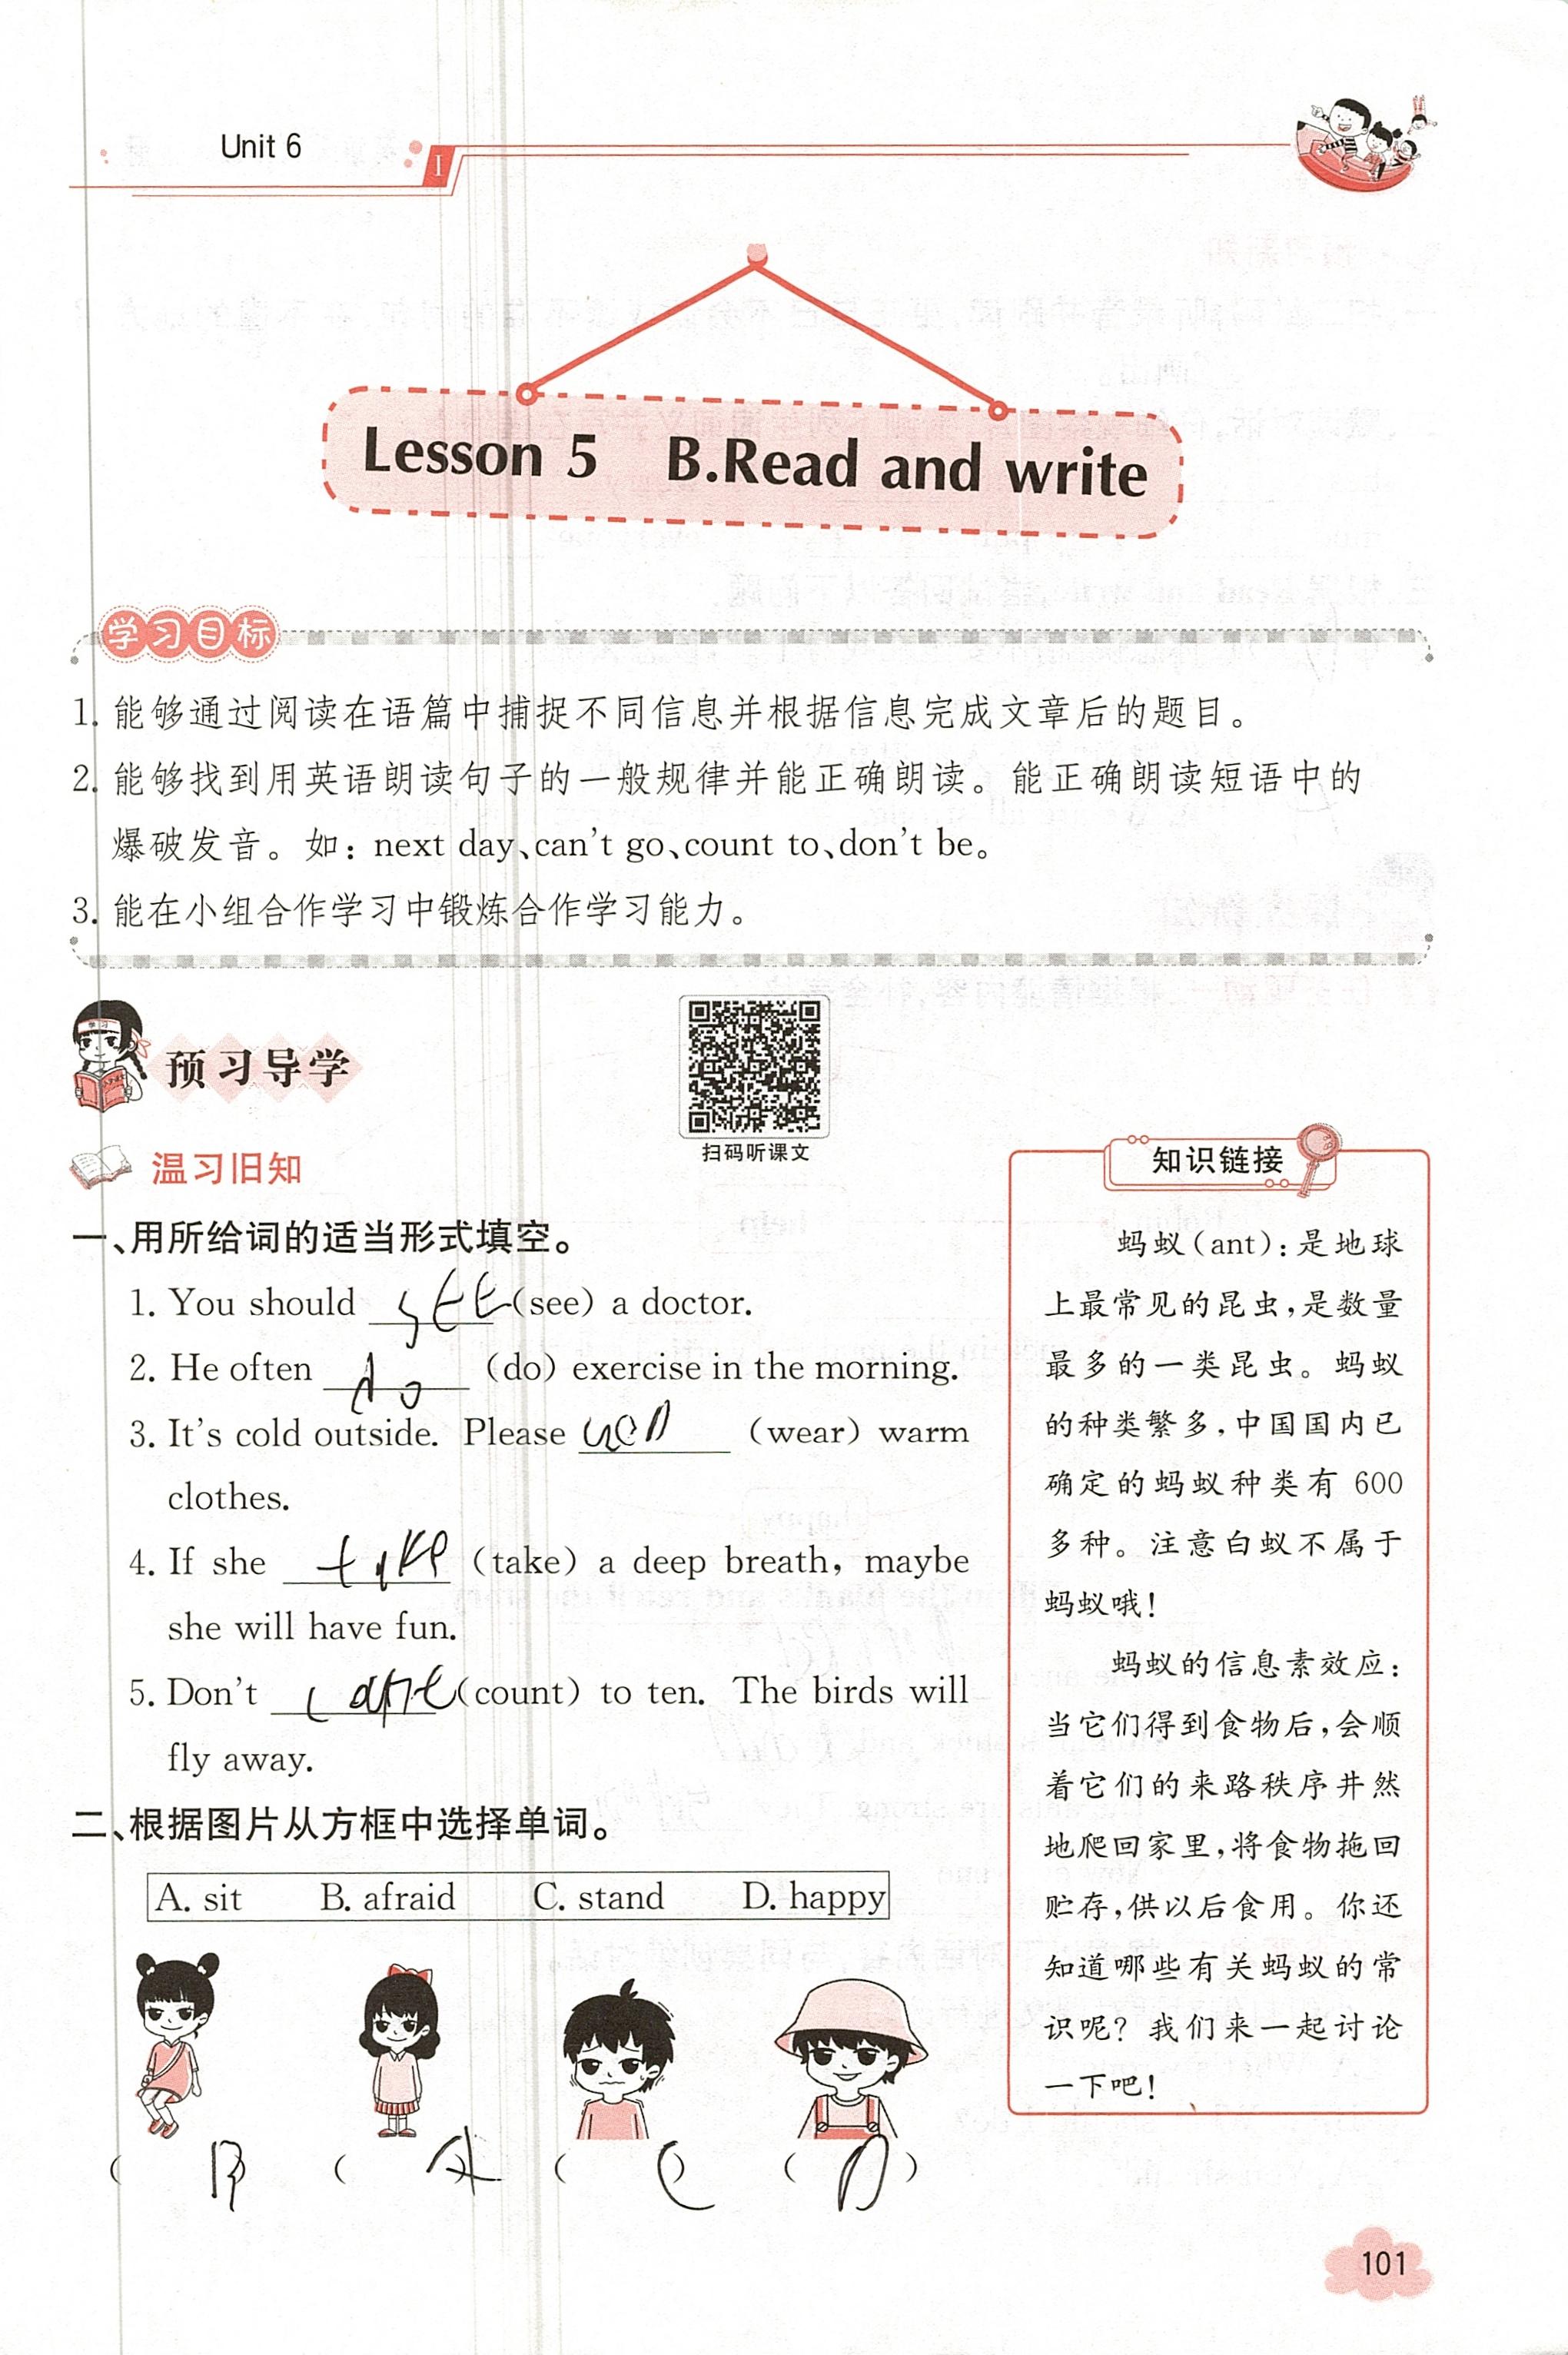 Unit 6
I
Lesson 5 B.Read and write
学习目标
1. 能够通过阅读在语篇中捕捉不同信息并根据信息完成文章后的题目。
2. 能够找到用英语朗读句子的一般规律并能正确朗读。能正确朗读短语中的
爆破发音。如：next day、can't go、count to、don't be。
3. 能在小组合作学习中锻炼合作学习能力。
学习
预习导学
扫码听课文
温习旧知
一、用所给词的适当形式填空。
1. You should see (see) a doctor.
2. He often do (do) exercise in the morning.
3. It's cold outside. Please (wear) warm
clothes.
4. If she take (take) a deep breath, maybe
she will have fun.
5. Don't (count) to ten. The birds will
fly away.
二、根据图片从方框中选择单词。
A. sit B. afraid C. stand D. happy
( B ( A ( C ) ( D )
知识链接
蚂蚁(ant)：是地球
上最常见的昆虫，是数量
最多的一类昆虫。蚂蚁
的种类繁多，中国国内已
确定的蚂蚁种类有 600
多种。注意白蚁不属于
蚂蚁哦！
蚂蚁的信息素效应：
当它们得到食物后，会顺
着它们的来路秩序井然
地爬回家里，将食物拖回
贮存，供以后食用。你还
知道哪些有关蚂蚁的常
识呢？我们来一起讨论
一下吧！
101